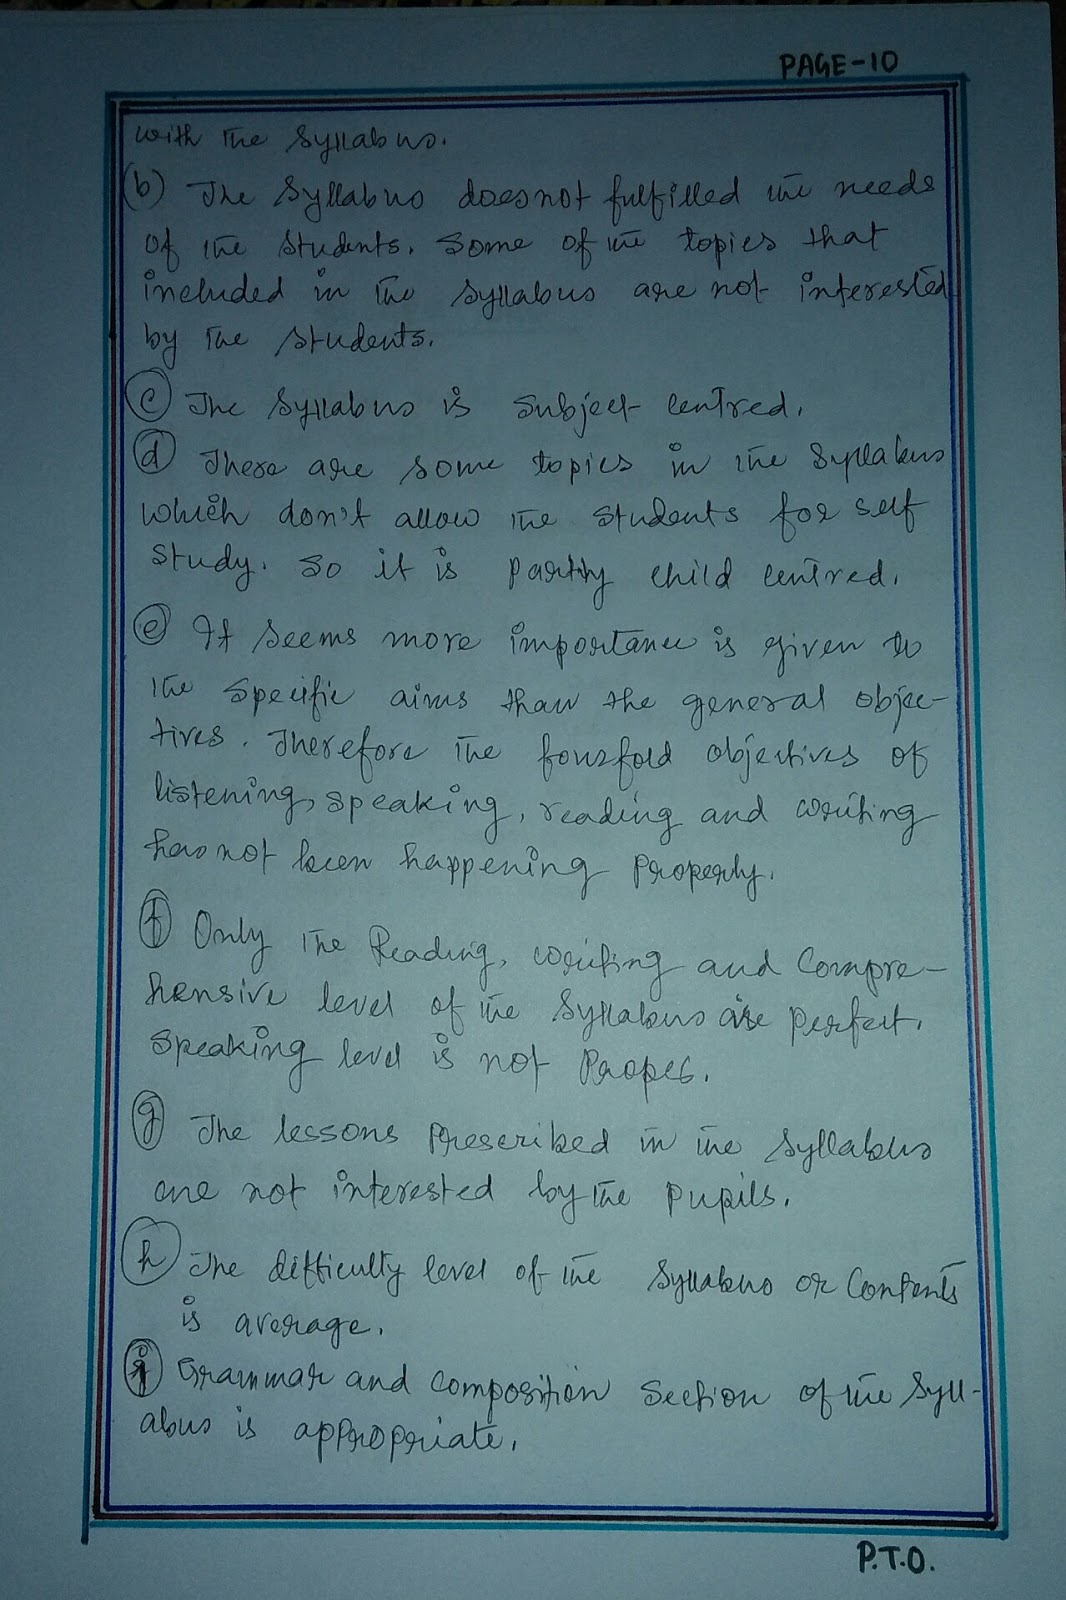 PAGE-10
with the Syllabus.
(b) The Syllabus doesnot fulfilled the needs
of the Students. Some of the topics that
included in the Syllabus are not interested
by the students.
(c) The Syllabus is Subject centred.
(d) These are some topics in the Syllabus
which don't allow the students for self
study. So it is partly child centred.
(e) It seems more importance is given to
the specific aims than the general objec-
tives. Therefore the fourfold objectives of
listening, speaking, reading and writing
has not been happening properly.
(f) Only the Reading, writing and Compre-
hensive level of the Syllabus are perfect.
Speaking level is not Proper.
(g) The lessons prescribed in the Syllabus
are not interested by the pupils.
(h) The difficulty level of the Syllabus or Contents
is average.
(i) Grammar and composition Section of the Syll-
abus is appropriate.
P.T.O.